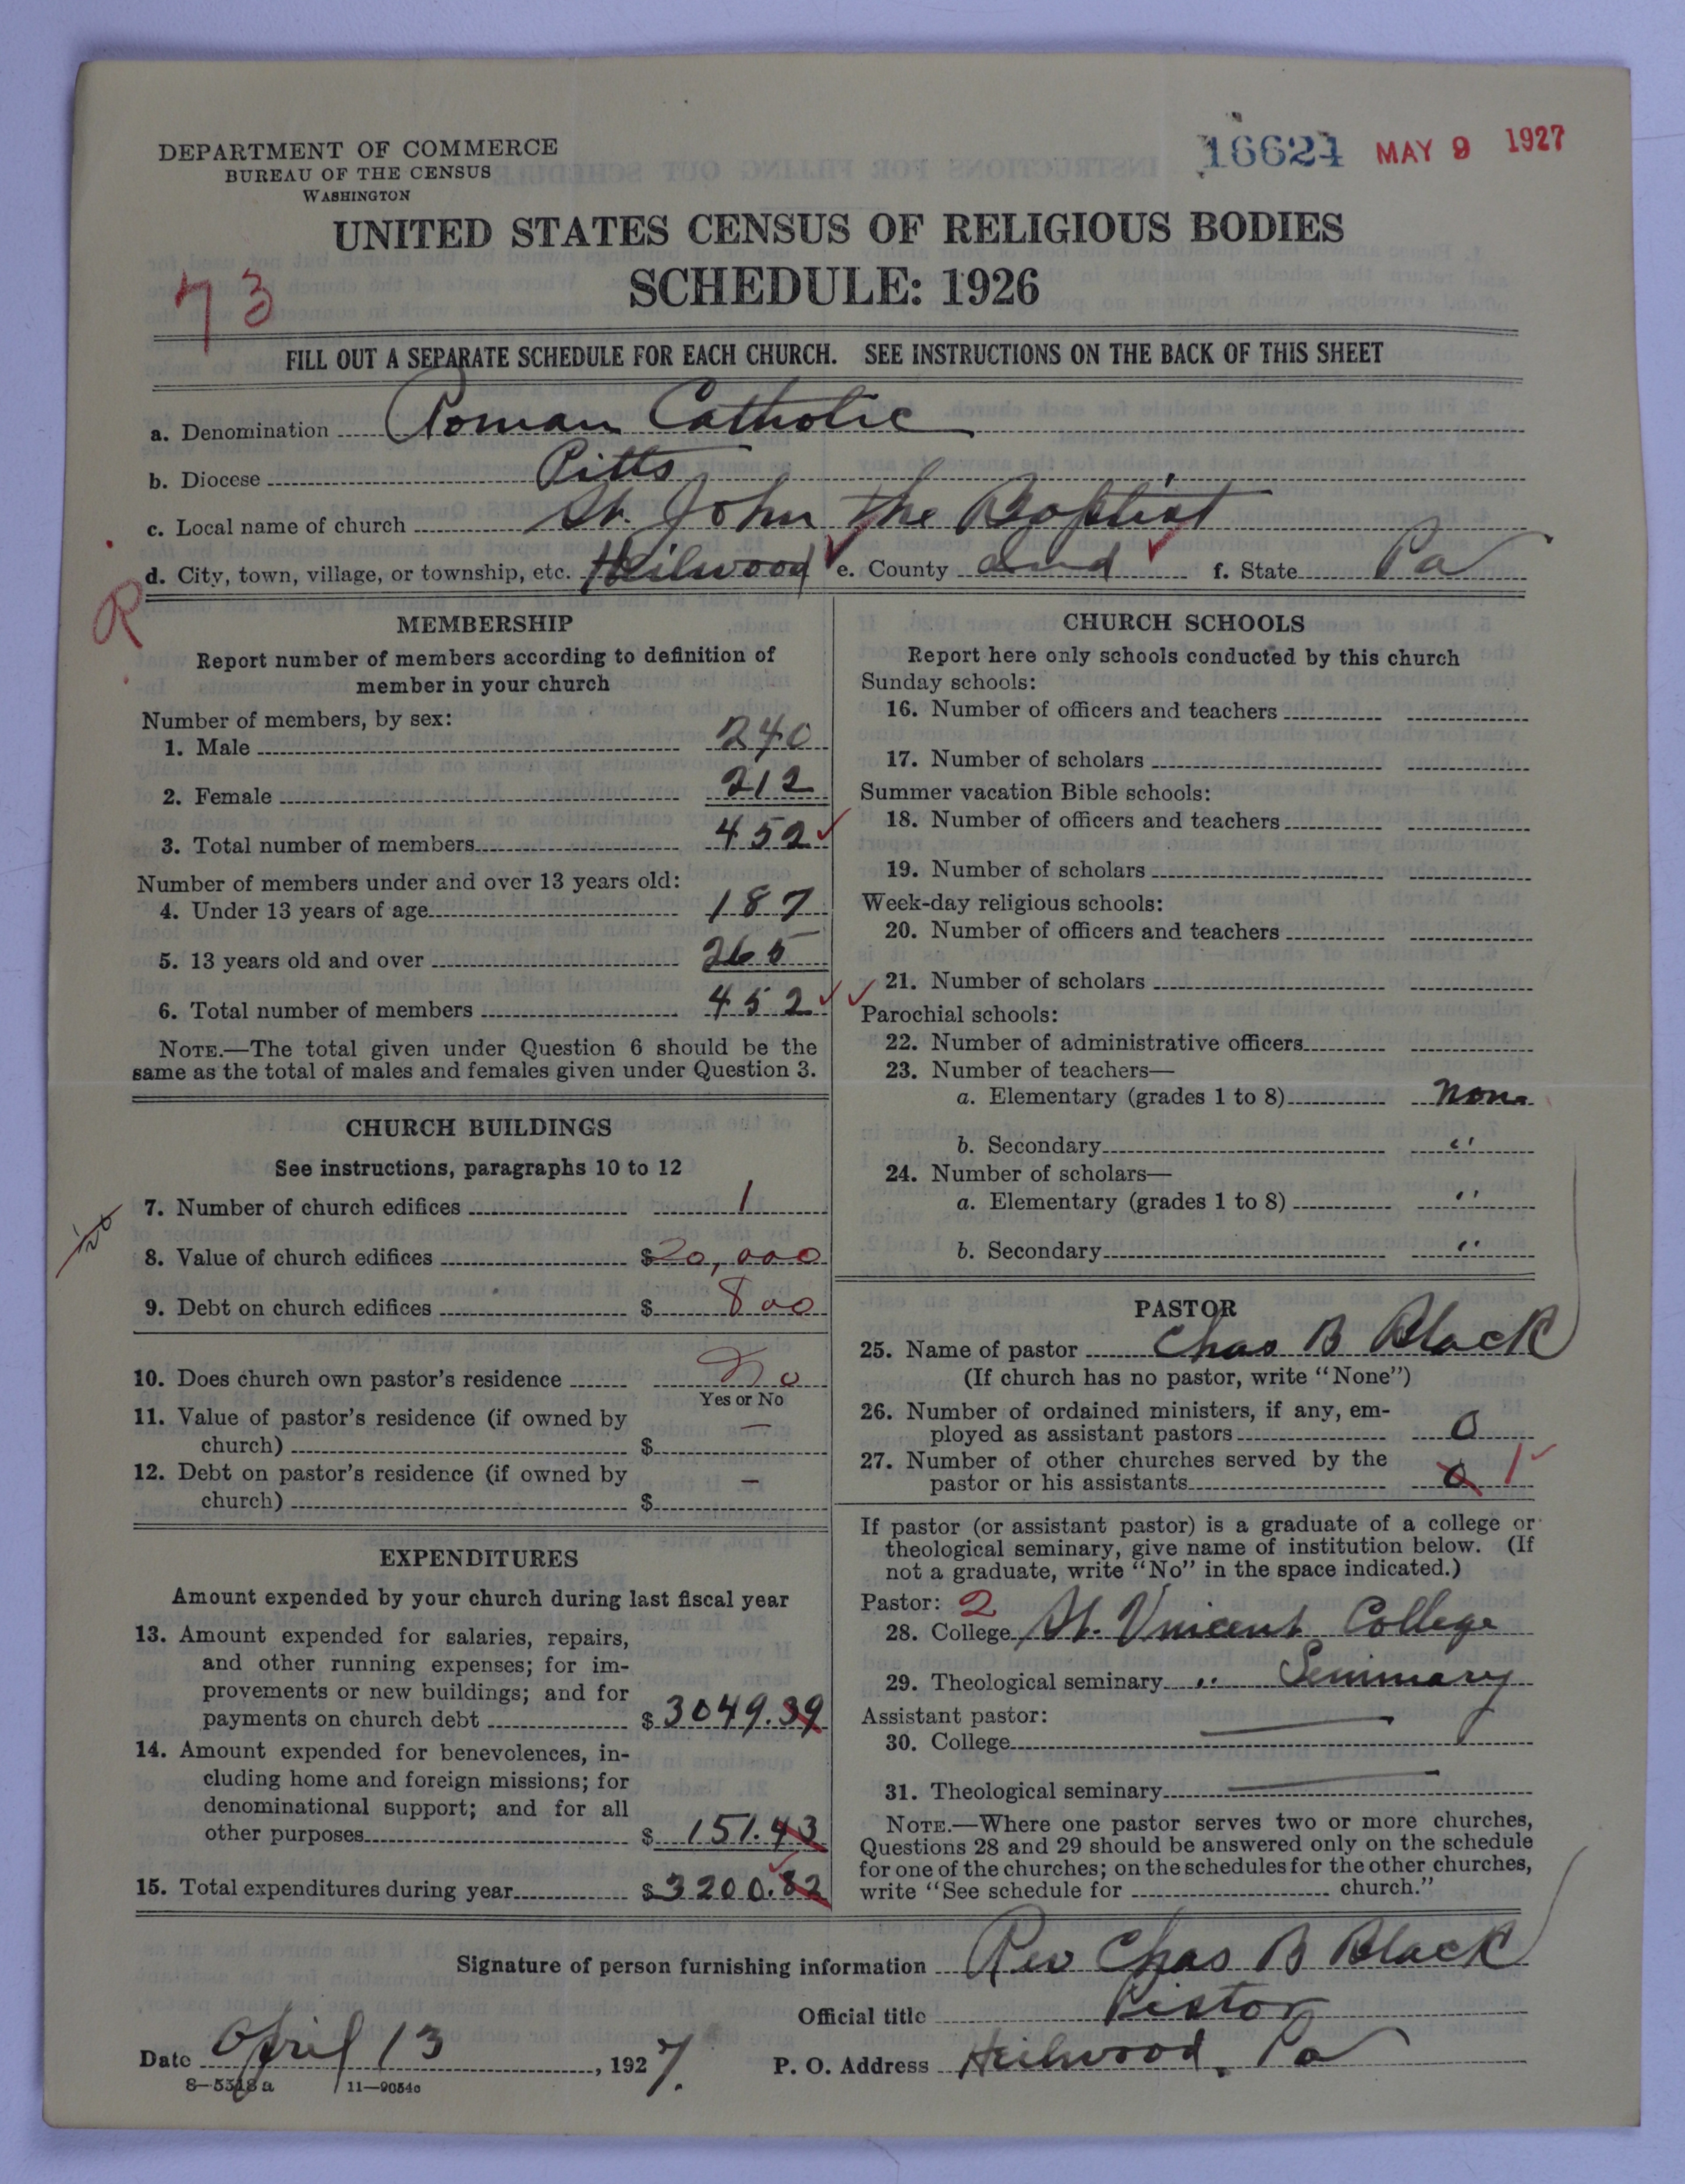 DEPARTMENT OF COMMERCE
BUREAU OF THE CENSUS
WASHINGTON
16624 MAY 9 1927
UNITED STATES CENSUS OF RELIGIOUS BODIES
SCHEDULE: 1926
73
FILL OUT A SEPARATE SCHEDULE FOR EACH CHURCH. SEE INSTRUCTIONS ON THE BACK OF THIS SHEET
a. Denomination Roman Catholic
b. Diocese Pitts
c. Local name of church St. John the Baptist
d. City, town, village, or township, etc. Heilwood e. County Ind f. State Pa
R
MEMBERSHIP
Report number of members according to definition of
member in your church
Number of members, by sex:
1. Male 240
2. Female 212
3. Total number of members 452
Number of members under and over 13 years old:
4. Under 13 years of age 187
5. 13 years old and over 265
6. Total number of members 452
NOTE.—The total given under Question 6 should be the
same as the total of males and females given under Question 3.
CHURCH BUILDINGS
See instructions, paragraphs 10 to 12
7. Number of church edifices 1
8. Value of church edifices $20,000
9. Debt on church edifices $800
10. Does church own pastor's residence No
Yes or No
11. Value of pastor's residence (if owned by
church) $ —
12. Debt on pastor's residence (if owned by
church) $ —
EXPENDITURES
Amount expended by your church during last fiscal year
13. Amount expended for salaries, repairs,
and other running expenses; for im-
provements or new buildings; and for
payments on church debt $3049.39
14. Amount expended for benevolences, in-
cluding home and foreign missions; for
denominational support; and for all
other purposes $151.43
15. Total expenditures during year $3200.82
CHURCH SCHOOLS
Report here only schools conducted by this church
Sunday schools:
16. Number of officers and teachers
17. Number of scholars
Summer vacation Bible schools:
18. Number of officers and teachers
19. Number of scholars
Week-day religious schools:
20. Number of officers and teachers
21. Number of scholars
Parochial schools:
22. Number of administrative officers
23. Number of teachers—
a. Elementary (grades 1 to 8) none
b. Secondary "
24. Number of scholars—
a. Elementary (grades 1 to 8) "
b. Secondary "
PASTOR
25. Name of pastor Chas B Black
(If church has no pastor, write "None")
26. Number of ordained ministers, if any, em-
ployed as assistant pastors 0
27. Number of other churches served by the
pastor or his assistants 0 1
If pastor (or assistant pastor) is a graduate of a college or
theological seminary, give name of institution below. (If
not a graduate, write "No" in the space indicated.)
Pastor: 2
28. College St. Vincent College
29. Theological seminary " Seminary
Assistant pastor:
30. College
31. Theological seminary
NOTE.—Where one pastor serves two or more churches,
Questions 28 and 29 should be answered only on the schedule
for one of the churches; on the schedules for the other churches,
write "See schedule for church."
Signature of person furnishing information Rev Chas B Black
Official title Pastor
Date April 13, 1927. P. O. Address Heilwood, Pa
8—5318a 11—9054c